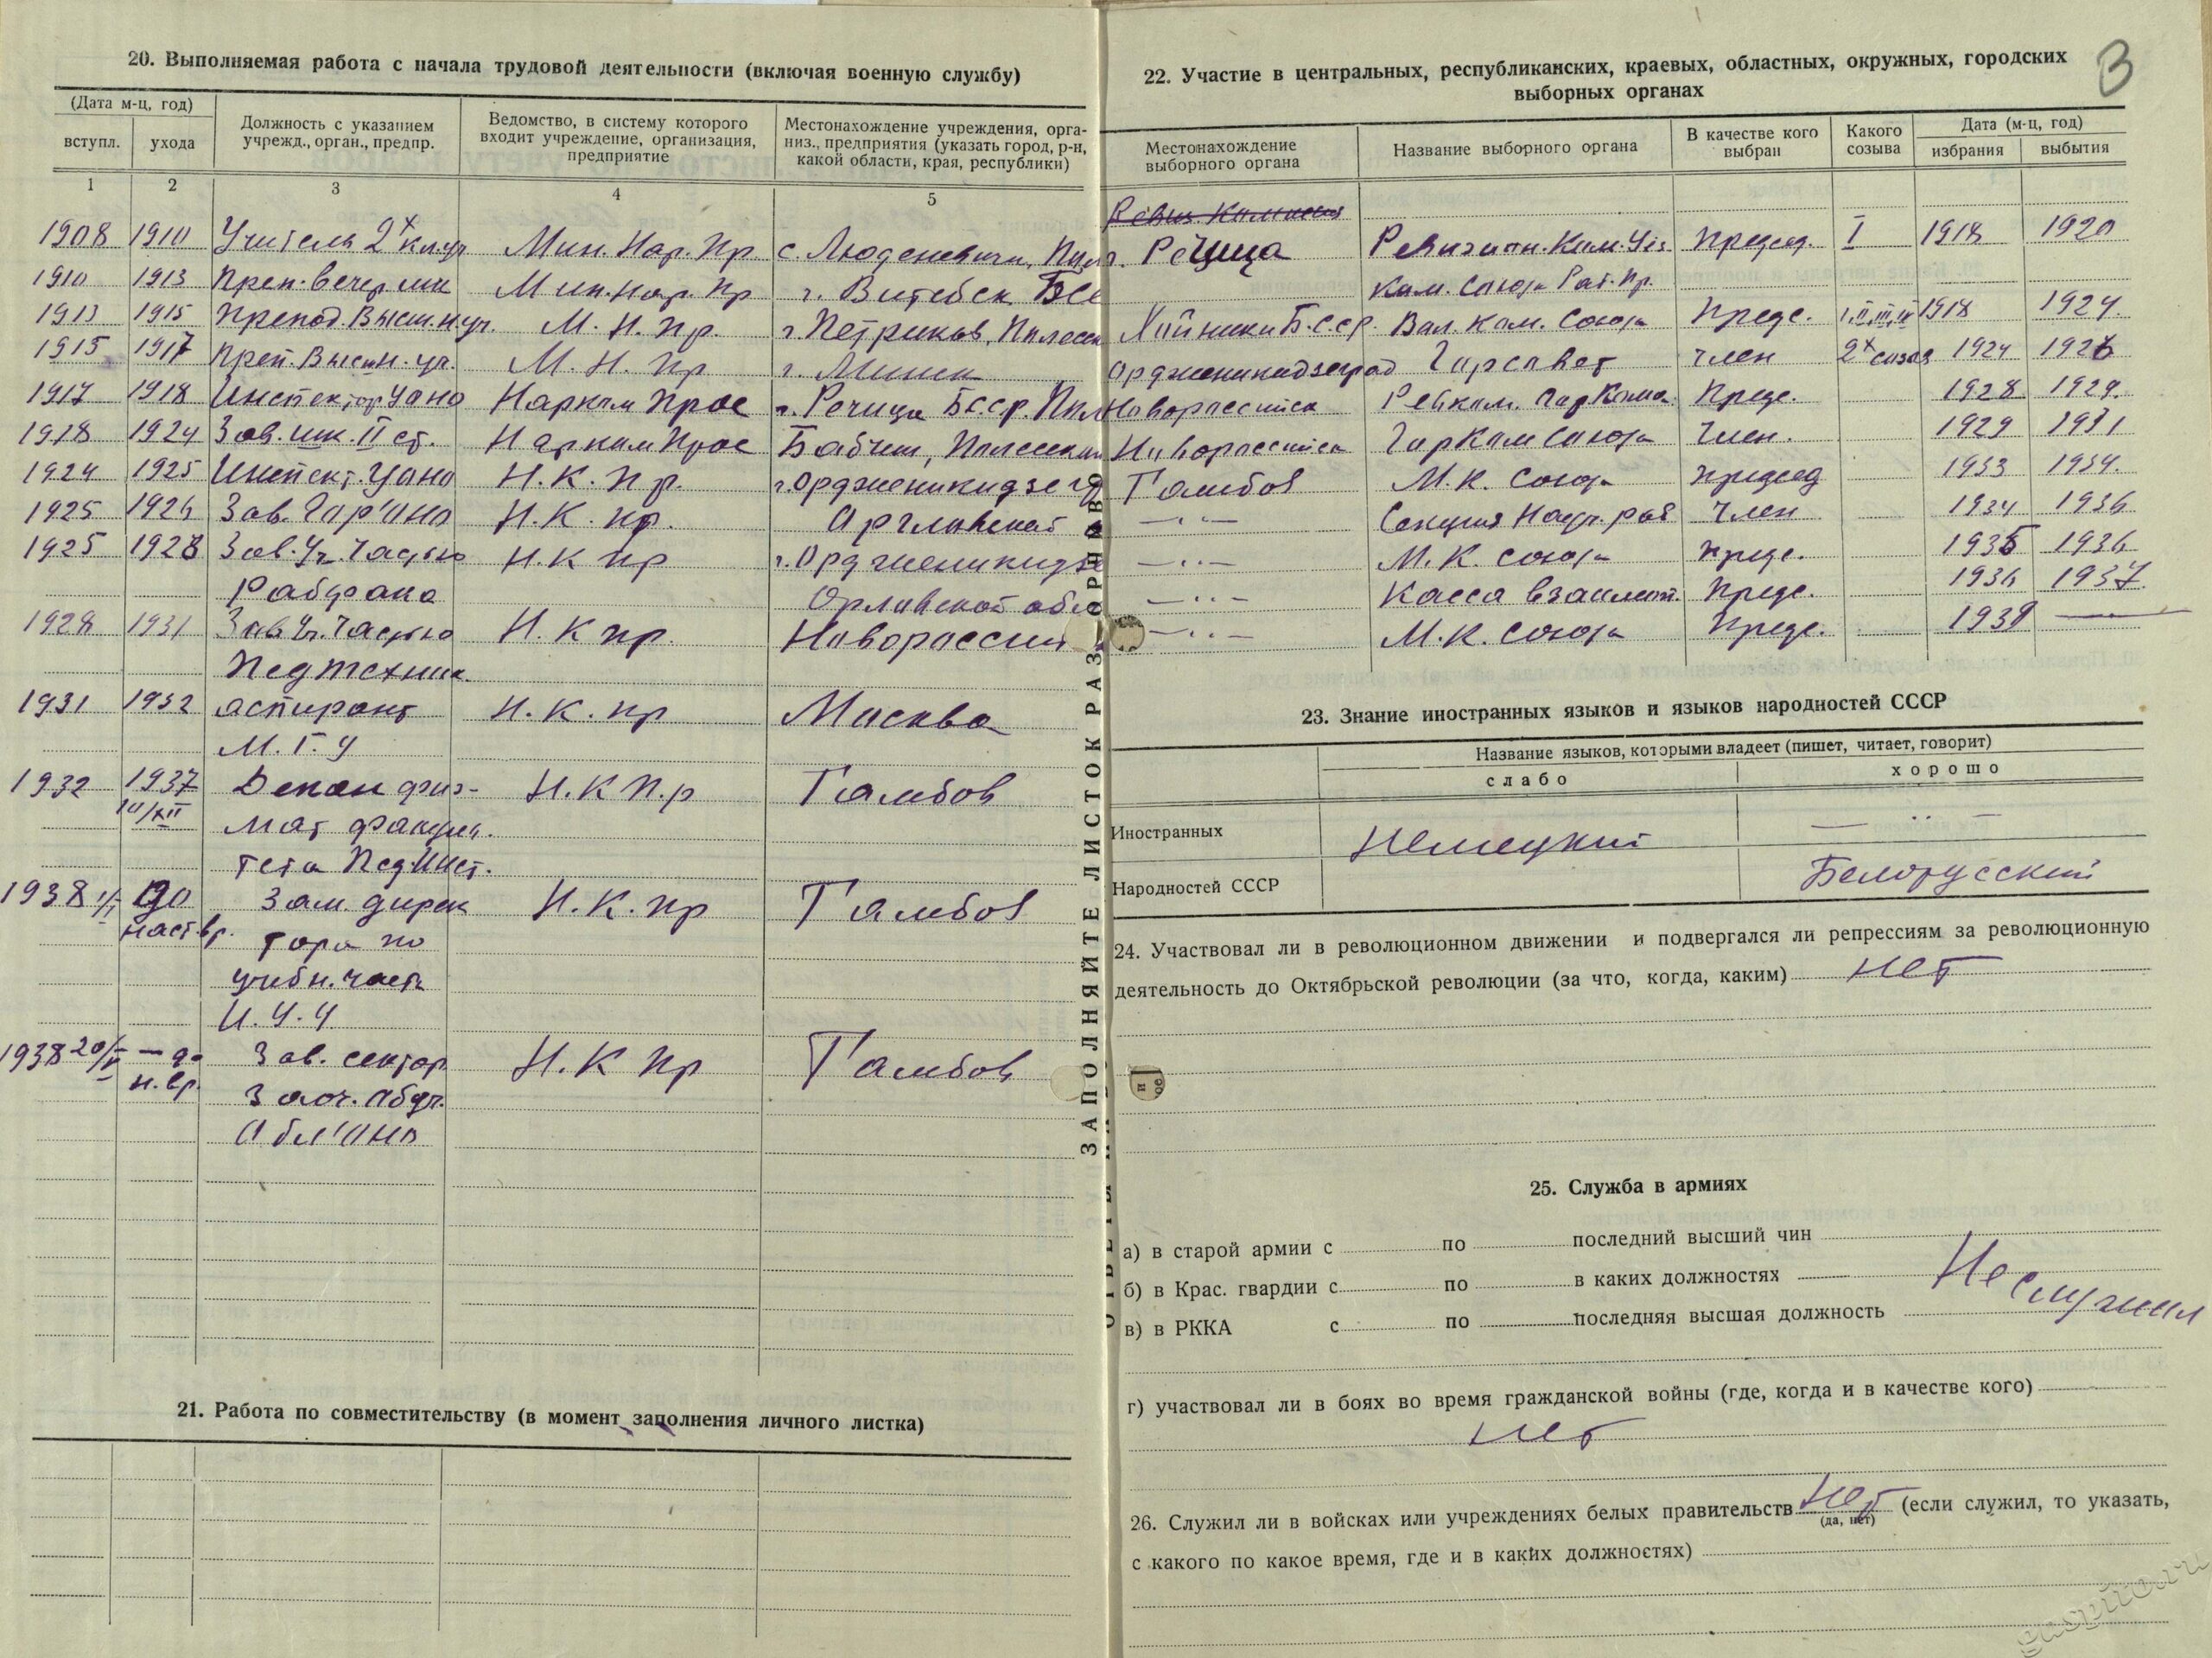 20. Выполняемая работа с начала трудовой деятельности (включая военную службу)
(Дата м-ц, год)
вступл. ухода
Должность с указанием учрежд., орган., предпр.
Ведомство, в систему которого входит учреждение, организация, предприятие
Местонахождение учреждения, орга-
низ., предприятия (указать город, р-н, какой области, края, республики)
1 2 3 4 5
1908 1910 Учитель 2х кл. уч Мин. Нар. Пр с. Люденевичи,
1910 1913 Преп. вечер шк Мин. нар. Пр г. Витебск БСС
1913 1915 Препод. Высш. н. уч. М. Н. Пр. г. Петриков, Полесск
1915 1917 Преп. Высш. н. уч. М. Н. Пр г. Минск
1917 1918 Инспектор Уоно Нарком Прос г. Речица БССР. Пол
1918 1924 Зав. шк. II ст. Нарком Прос Бабчин, Полесской
1924 1925 Инспект. Уоно Н. К. Пр. г. Орджоникидзегр
1925 1926 Зав. Гор'оно Н. К. пр. Орловской
1925 1928 Зав. Уч. Частью Н. К пр г. Орджоникидзе
Рабфака Орловской обл
1928 1931 Зав Уч. Частью Н. К пр. Новороссийск
Педтехник.
1931 1932 аспирант Н. К. пр Москва
М. Г. У
1932 1937 Декан физ- Н. К П. р Тамбов
10/XII мат факуль.
тета Пед. Инст.
1938 1/I до Зам. дирек Н. К. пр Тамбов
наст. вр. тора по
учебн. части
И. У. У
1938 20/V — до Зав. сектор Н. К Пр Тамбов
н. вр. Заоч. Обуч.
Обл'оно
21. Работа по совместительству (в момент заполнения личного листка)
ЗАПОЛНЯЙТЕ ЛИСТОК РАЗБОРЧИВО
3
22. Участие в центральных, республиканских, краевых, областных, окружных, городских
выборных органах
Местонахождение выборного органа
Название выборного органа
В качестве кого выбран
Какого созыва
Дата (м-ц, год)
избрания выбытия
Ревиз. Комиссия
г. Речица Ревизион. Ком. Уез Председ. I 1918 1920
Ком. Союза Раб. Пр.
Хойники Б.С.С.Р. Вол. Ком. Союза Предс. I, II, III, IV 1918 1924.
Орджоникидзеград Горсовет член 2х созыв 1924 1926
Новороссийск Ревком. ГорКома Предс. 1928 1929.
Новороссийск ГорКом Союза Член. 1929 1931
Тамбов М. К. Союза Председ 1933 1934.
— " — Секция Науч. раб Член 1934 1936
— " — М. К. Союза предс. 1935 1936
— " — Касса взаимоп. Предс. 1936 1937
— " — М. К. Союза Предс. 1938 —
23. Знание иностранных языков и языков народностей СССР
Название языков, которыми владеет (пишет, читает, говорит)
слабо хорошо
Иностранных Немецкий — " —
Народностей СССР Белорусский
24. Участвовал ли в революционном движении и подвергался ли репрессиям за революционную
деятельность до Октябрьской революции (за что, когда, каким) нет
25. Служба в армиях
а) в старой армии с по последний высший чин
б) в Крас. гвардии с по в каких должностях Не служил
в) в РККА с по последняя высшая должность
г) участвовал ли в боях во время гражданской войны (где, когда и в качестве кого)
нет
26. Служил ли в войсках или учреждениях белых правительств Нет (если служил, то указать,
(да, нет)
с какого по какое время, где и в каких должностях)
gaspito.ru